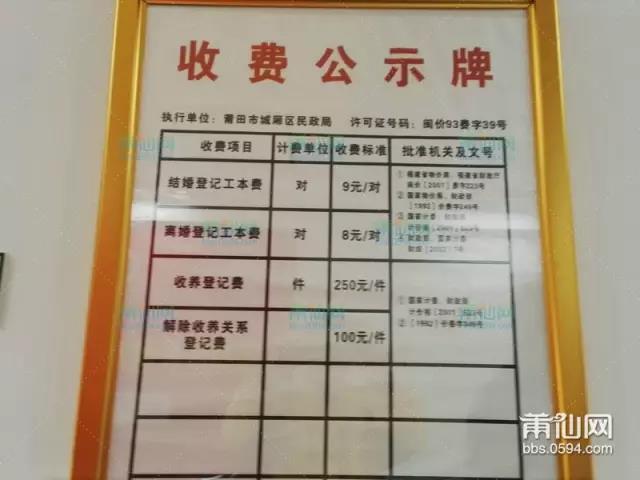 收费公示牌
执行单位：莆田市城厢区民政局 许可证号码：闽价93费字39号
收费项目 计费单位 收费标准 批准机关及文号
结婚登记工本费 对 9元/对
① 福建省物价局、福建省财政厅
② 国家物价局、财政部
[1992] 价费字249号
③ 国家计委、财政部
离婚登记工本费 对 8元/对
④ 财政部、国家计委
收养登记费 件 250元/件
① 国家计委、财政部
② [1992] 价费字249号
解除收养关系
登记费 100元/件
莆仙网
bbs.0594.com